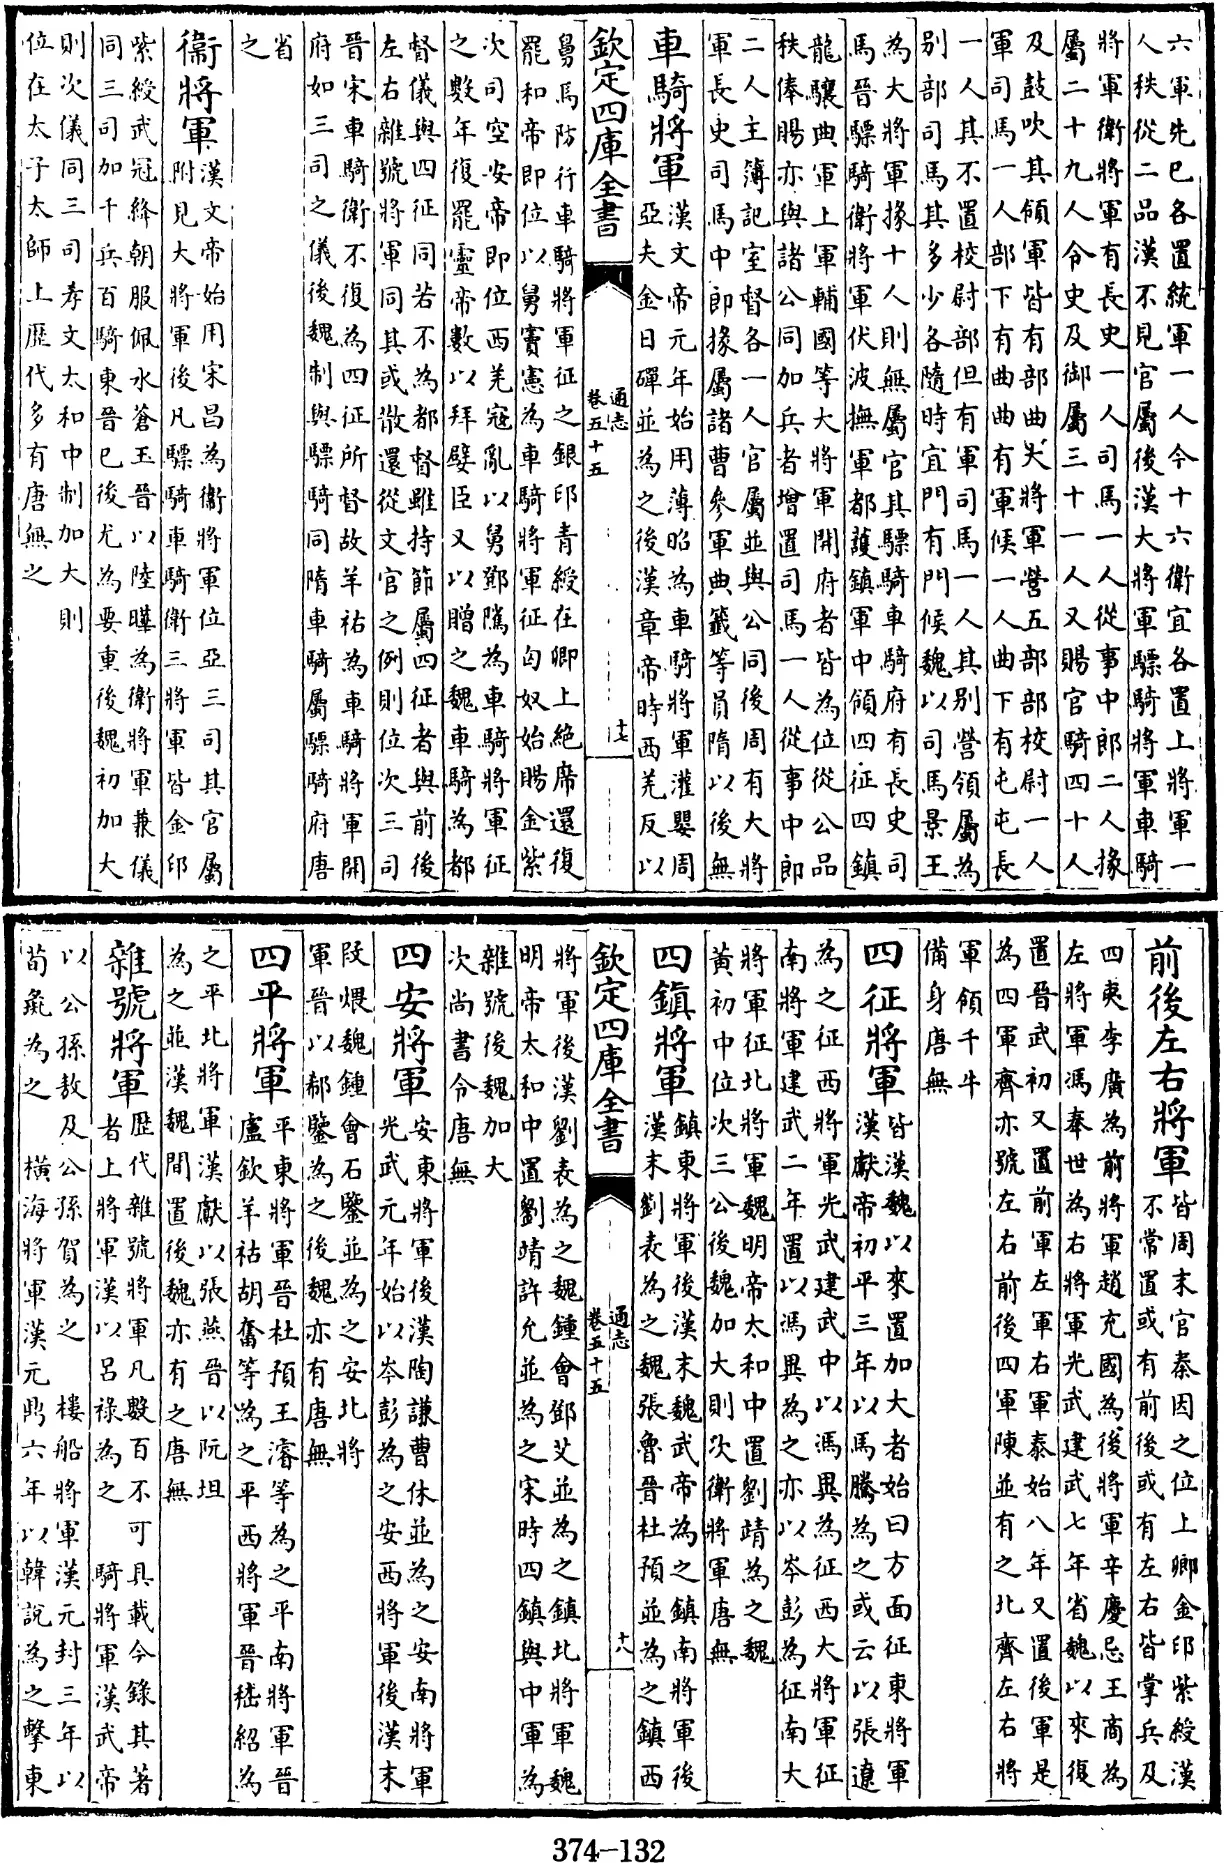 六軍先已各置統軍一人今十六衛宜各置上將軍一
人秩從二品漢不見官屬後漢大將軍驃騎將軍車騎
將軍衛將軍有長史一人司馬一人從事中郎二人掾
屬二十九人令史及御屬三十一人又賜官騎四十人
及鼓吹其領軍皆有部曲大將軍營五部部校尉一人
軍司馬一人部下有曲曲有軍候一人曲下有屯屯長
一人其不置校尉部但有軍司馬一人其別營領屬為
別部司馬其多少各隨時宜門有門候魏以司馬景王
為大將軍掾十人則無屬官其驃騎車騎府有長史司
馬晉驃騎衛將軍伏波撫軍都護鎮軍中領四征四鎮
龍驤典軍上軍輔國等大將軍開府者皆為位從公品
秩俸賜亦與諸公同加兵者增置司馬一人從事中郎
二人主簿記室督各一人官屬並與公同後周有大將
軍長史司馬中郎掾屬諸曹參軍典籤等員隋以後無
車騎將軍漢文帝元年始用薄昭為車騎將軍灌嬰周
亞夫金日磾並為之後漢章帝時西羌反以
欽定四庫全書
通志
卷五十五
十七
舅馬防行車騎將軍征之銀印青綬在卿上絶席還復
罷和帝即位以舅竇憲為車騎將軍征匈奴始賜金紫
次司空安帝即位西羌寇亂以舅鄧隲為車騎將軍征
之數年復罷靈帝數以拜嬖臣又以贈之魏車騎為都
督儀與四征同若不為都督雖持節屬四征者與前後
左右雜號將軍同其或散還從文官之例則位次三司
晉宋車騎衛不復為四征所督故羊祜為車騎將軍開
府如三司之儀後魏制與驃騎同隋車騎屬驃騎府唐
省
之
衛將軍漢文帝始用宋昌為衛將軍位亞三司其官屬
附見大將軍後凡驃騎車騎衛三將軍皆金印
紫綬武冠絳朝服佩水蒼玉晉以陸曄為衛將軍兼儀
同三司加千兵百騎東晉已後尤為要重後魏初加大
則次儀同三司孝文太和中制加大則
位在太子太師上歴代多有唐無之
前後左右將軍皆周末官秦因之位上卿金印紫綬漢
不常置或有前後或有左右皆掌兵及
四夷李廣為前將軍趙充國為後將軍辛慶忌王商為
左將軍馮奉世為右將軍光武建武七年省魏以來復
置晉武初又置前軍左軍右軍泰始八年又置後軍是
為四軍齊亦號左右前後四軍陳並有之北齊左右將
軍領千牛
備身唐無
四征將軍皆漢魏以來置加大者始曰方面征東將軍
漢獻帝初平三年以馬騰為之或云以張遼
為之征西將軍光武建武中以馮異為征西大將軍征
南將軍建武二年置以馮異為之亦以岑彭為征南大
將軍征北將軍魏明帝太和中置劉靖為之魏
黃初中位次三公後魏加大則次衛將軍唐無
四鎮將軍鎮東將軍後漢末魏武帝為之鎮南將軍後
漢末劉表為之魏張魯晉杜預並為之鎮西
欽定四庫全書
通志
卷五十五
十八
將軍後漢劉表為之魏鍾會鄧艾並為之鎮北將軍魏
明帝太和中置劉靖許允並為之宋時四鎮與中軍為
雜號後魏加大
次尚書令唐無
四安將軍安東將軍後漢陶謙曹休並為之安南將軍
光武元年始以岑彭為之安西將軍後漢末
段煨魏鍾會石鑒並為之安北將
軍晉以郗鑒為之後魏亦有唐無
四平將軍平東將軍晉杜預王濬等為之平南將軍晉
盧欽羊祜胡奮等為之平西將軍晉嵇紹為
之平北將軍漢獻以張燕晉以阮坦
為之並漢魏間置後魏亦有之唐無
雜號將軍歴代雜號將軍凡數百不可具載今錄其著
者上將軍漢以呂祿為之　騎將軍漢武帝
以公孫敖及公孫賀為之　樓船將軍漢元封三年以
荀彘為之　橫海將軍漢元鼎六年以韓說為之擊東
374-132